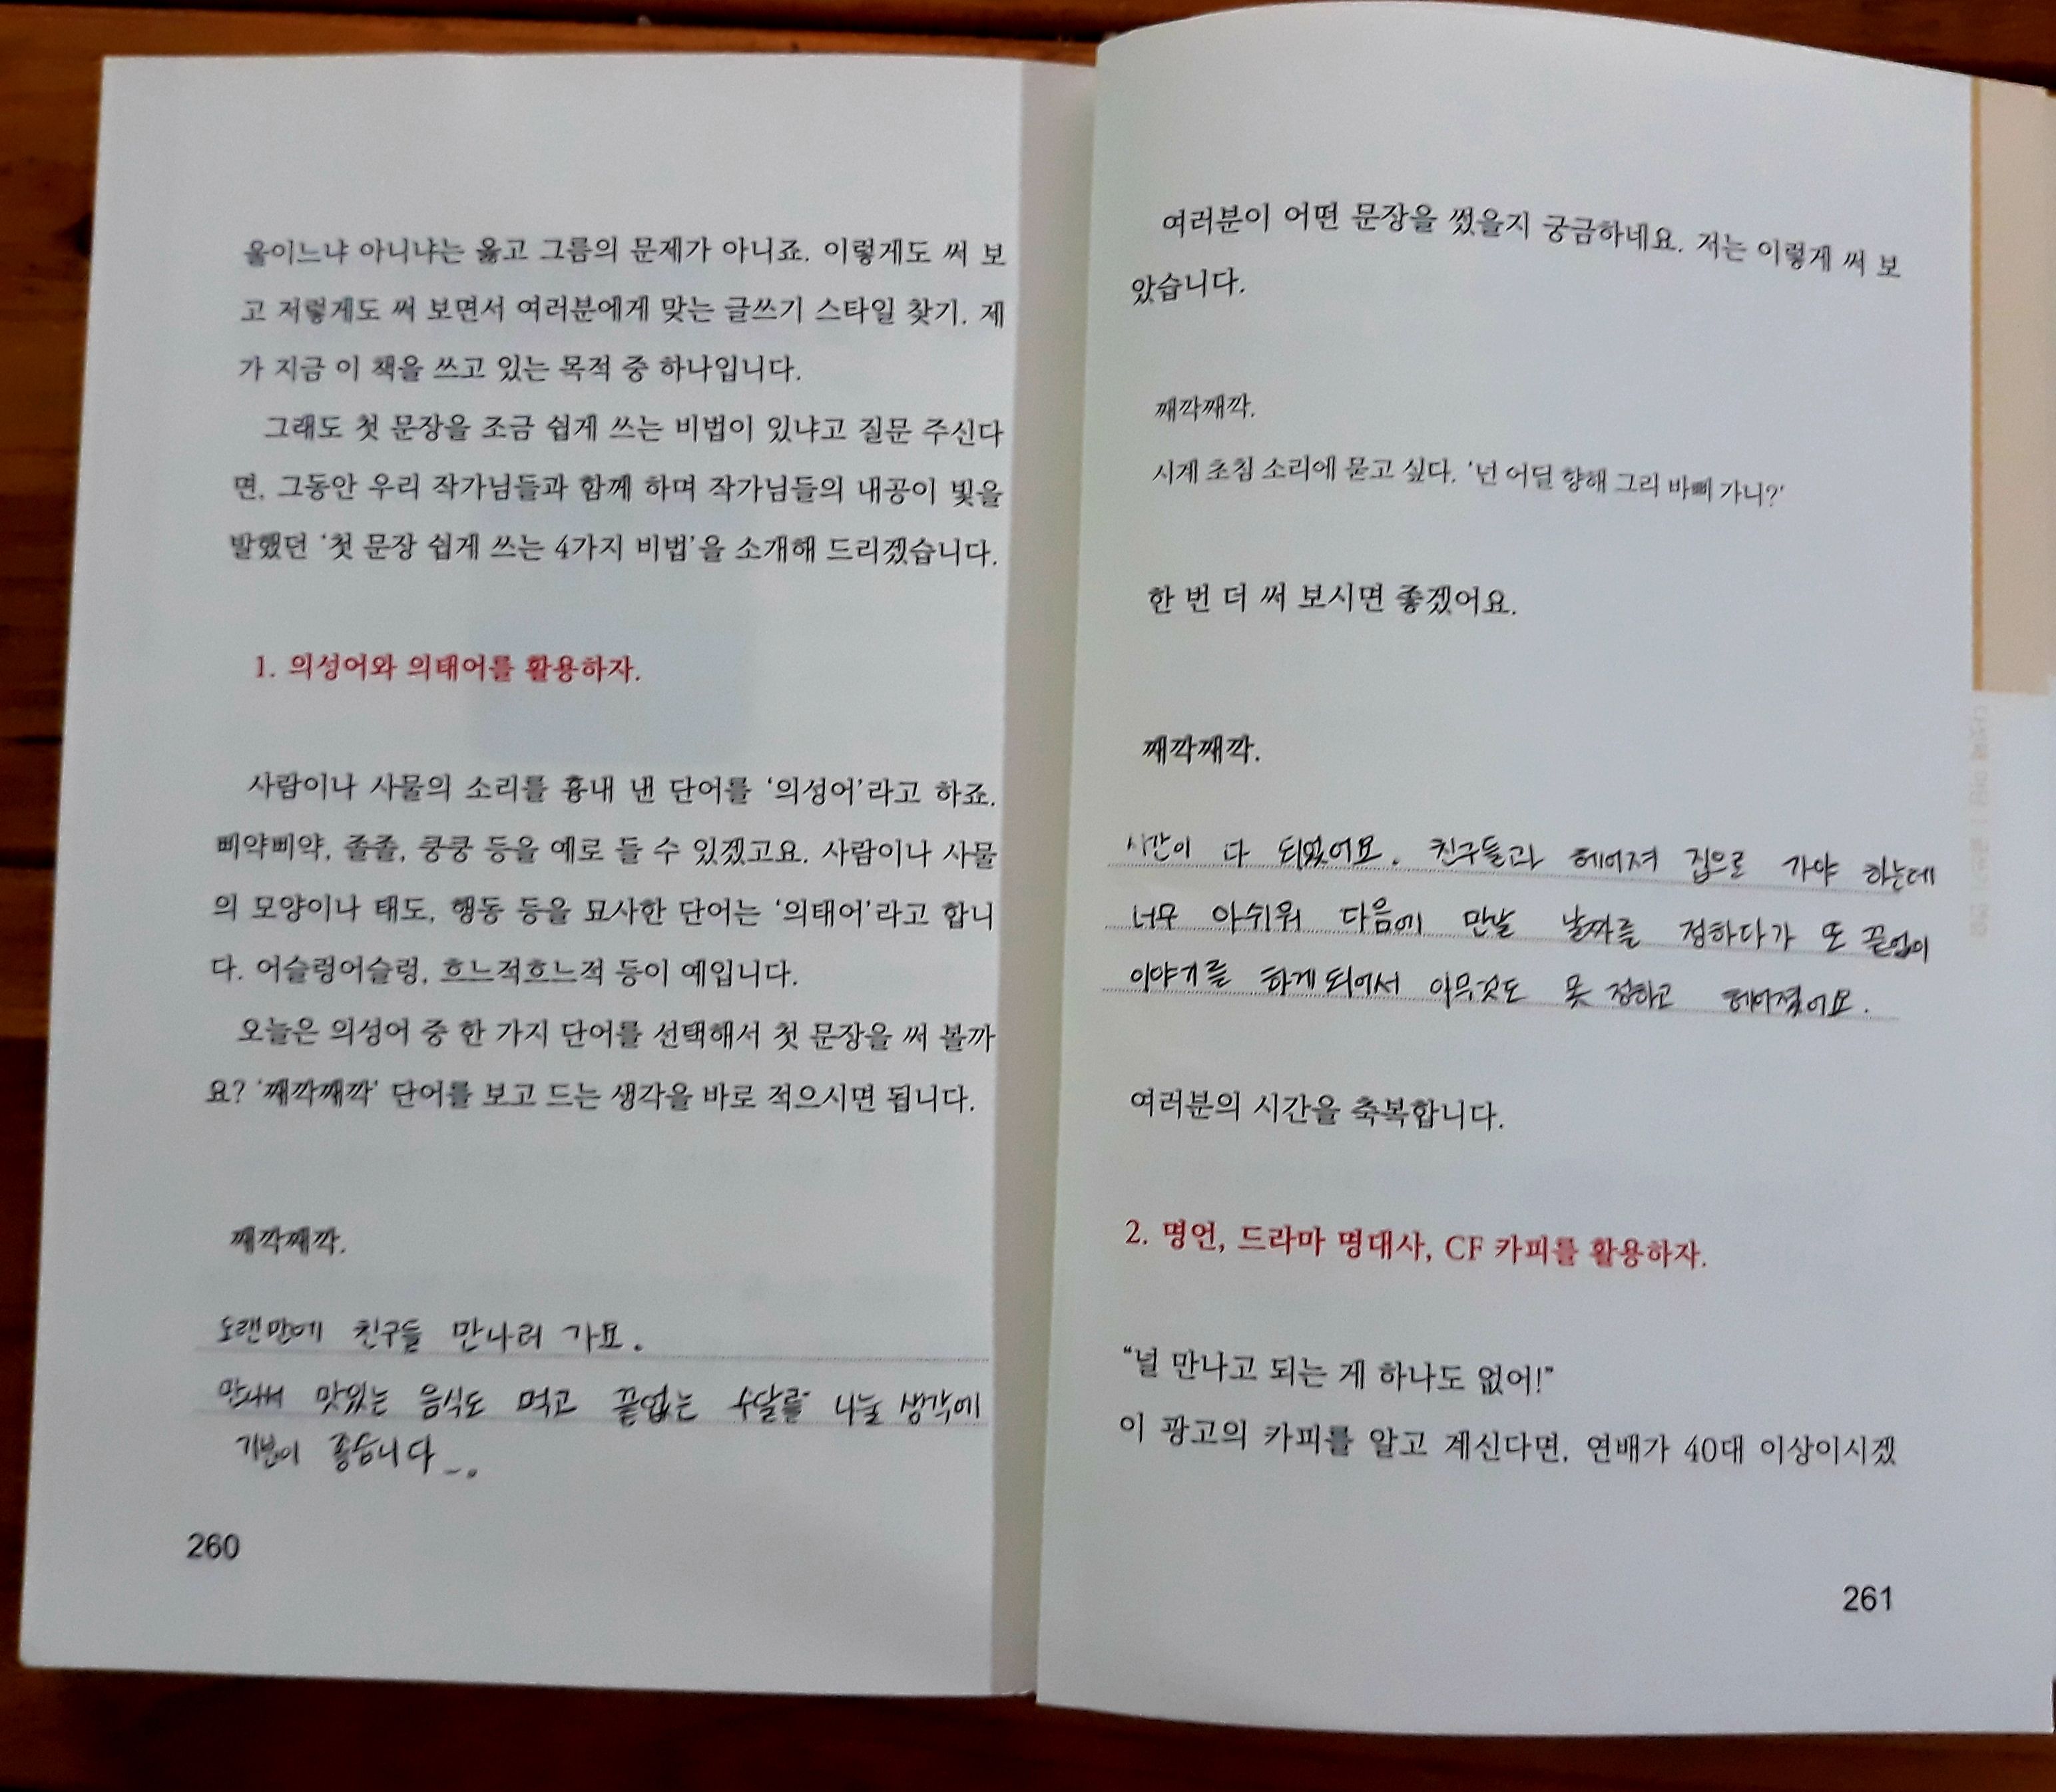 울이느냐 아니냐는 옳고 그름의 문제가 아니죠. 이렇게도 써 보
고 저렇게도 써 보면서 여러분에게 맞는 글쓰기 스타일 찾기. 제
가 지금 이 책을 쓰고 있는 목적 중 하나입니다.
그래도 첫 문장을 조금 쉽게 쓰는 비법이 있냐고 질문 주신다
면, 그동안 우리 작가님들과 함께 하며 작가님들의 내공이 빛을
발했던 '첫 문장 쉽게 쓰는 4가지 비법'을 소개해 드리겠습니다.
1. 의성어와 의태어를 활용하자.
사람이나 사물의 소리를 흉내 낸 단어를 '의성어'라고 하죠.
삐약삐약, 졸졸, 쿵쿵 등을 예로 들 수 있겠고요. 사람이나 사물
의 모양이나 태도, 행동 등을 묘사한 단어는 '의태어'라고 합니
다. 어슬렁어슬렁, 흐느적흐느적 등이 예입니다.
오늘은 의성어 중 한 가지 단어를 선택해서 첫 문장을 써 볼까
요? '째깍째깍' 단어를 보고 드는 생각을 바로 적으시면 됩니다.
째깍째깍.
오랜만에 친구들 만나러 가요.
만나서 맛있는 음식도 먹고 끝없는 수달를 나눌 생각에
기분이 좋습니다_.
260
여러분이 어떤 문장을 썼을지 궁금하네요. 저는 이렇게 써 보
았습니다.
째깍째깍.
시계 초침 소리에 묻고 싶다. '넌 어딜 향해 그리 바삐 가니?'
한 번 더 써 보시면 좋겠어요.
째깍째깍.
시간이 다 되었어요. 친구들과 헤어져 집으로 가야 하는데
너무 아쉬워 다음에 만날 날짜를 정하다가 또 끝없이
이야기를 하게되어서 아무것도 못 정하고 헤어졌어요.
여러분의 시간을 축복합니다.
2. 명언, 드라마 명대사, CF 카피를 활용하자.
"널 만나고 되는 게 하나도 없어!"
이 광고의 카피를 알고 계신다면, 연배가 40대 이상이시겠
261